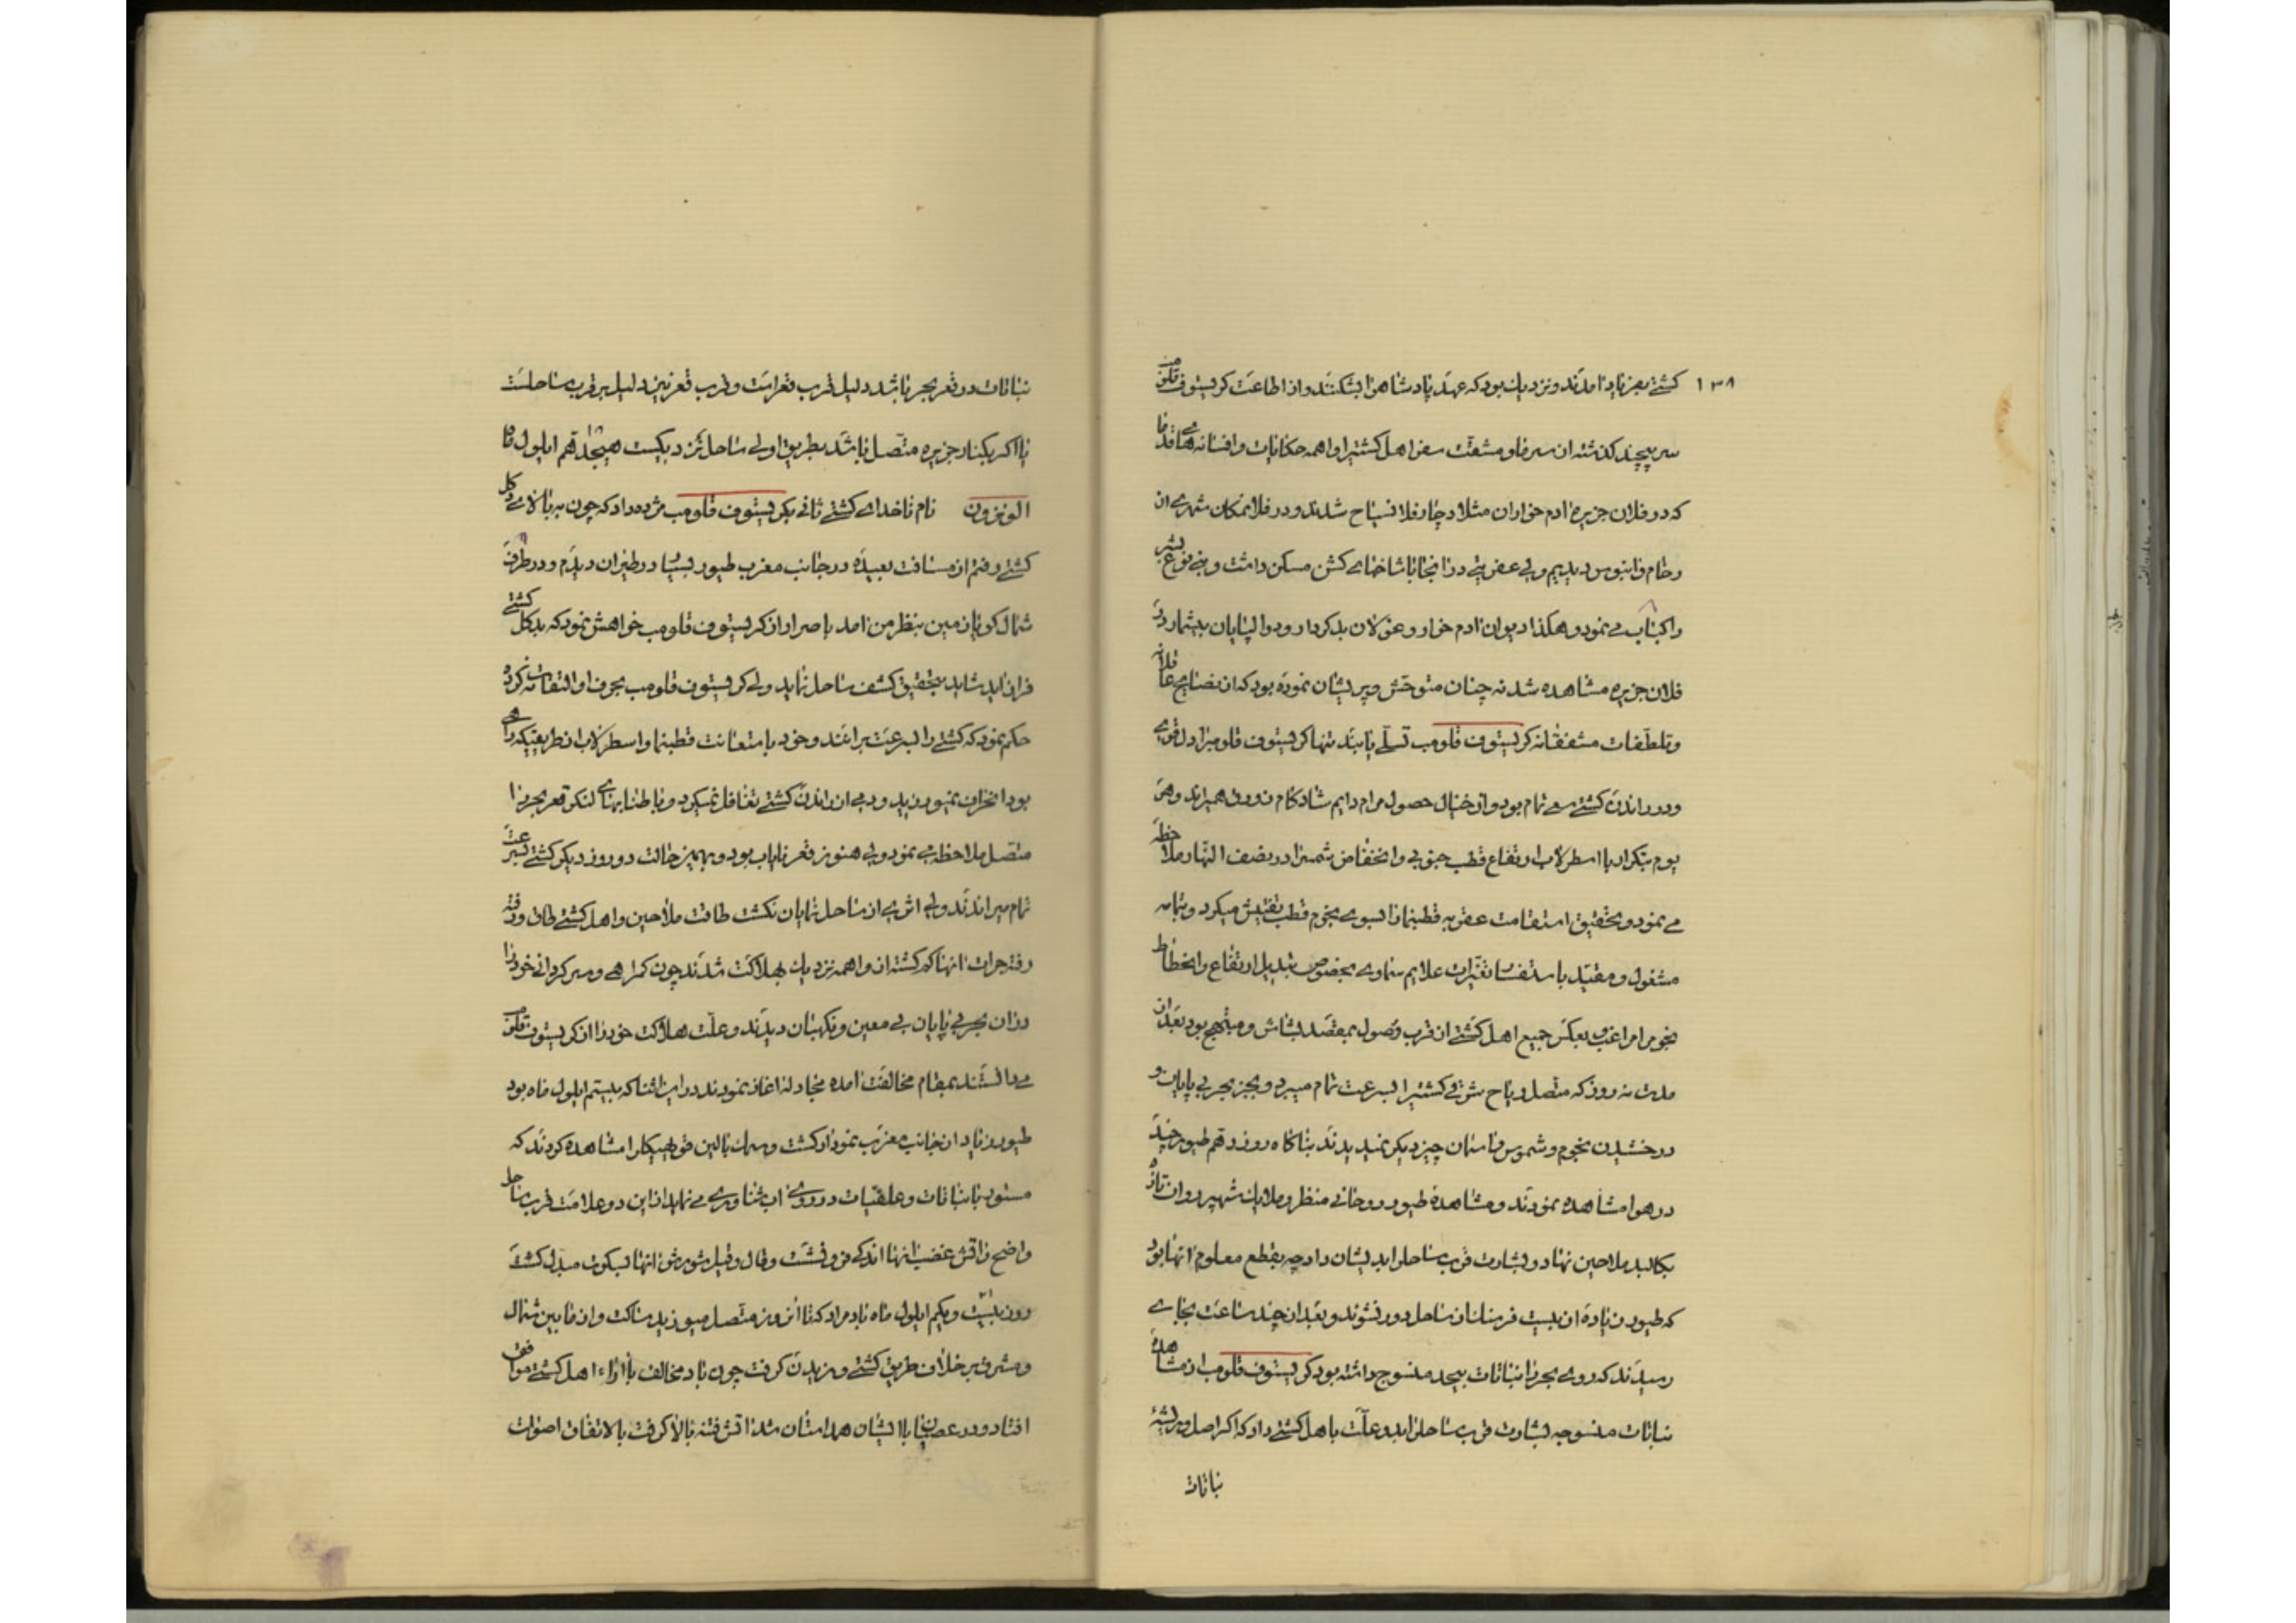 ۱۳۸
کشتی بعز زیاد امدند و نزدیك بود که عهد پادشاهرا بشکنند و از اطاعت کریستوف قلومب
سر پیچند گذشته از سرما و مشقت سفر اهل کشتیرا واهمه حکایات و افسانه‌های قدما
که در فلان جزیره ادم خواران مثلا دچار فلان سیاح شدند و در فلان مکان شهری از
رخام و ابنوس دیدیم ولی عفریتی در انجا با شاخهای کش مسکن داشت و بنی نوع بشر
را کباب می نمود و همکذا دیوان ادم خوار و غولان بدکردار و دوالپایان بیشمار در
فلان جزیره مشاهده شد نه چنان متوحش و پریشان نموده بود که از نصایح عاقلانه
و تلطفات مشفقانه کریستوف قلومب تسلی یابند تنها کریستوف قلومبرا دل قوی
و در راندن کشتی سعی تمام بود و از خیال حصول مرام دایم شادکام زورق همیراند و همه
یوم بتکرار با اسطرلاب ارتفاع قطب جنوبی و انخفاض شمسرا در نصف النهار ملاحظه
می نمود و تحقیق استقامت عقربه قطبنما را بسوی نجوم قطب تفتیش میکرد و بتمامه
مشغول و مقید باستفسار تغیرات علایم سماوی بخصوص تبدیل ارتفاع و انحطاط
نجوم را مراغب و بعکس جمیع اهل کشتی از قرب وصول بمقصد بشاش و مبتهج بود بعد از
مدت نه روز که متصل ریاح شرقی کشتیرا بسرعت تمام میبرد و بجز بحر بی پایان و
درخشیدن نجوم و شموس و اسمان چیز دیگر نمیدیدند بناگاه روز دهم طیور چند
در هوا مشاهده نمودند و مشاهده طیور روحانی منظر و ملایك شهپر روان تازه
بکالبد ملاحین نهاد و بشارت قرب ساحل بدیشان داد چه بقطع معلوم انها بود
که طیور زیاده از بیست فرسنك از ساحل دور نشوند و بعد از چند ساعت بجای
رسیدند که روی بحر را نباتات بیحد منسوج داشته بود کریستوف قلومب از مشاهده
نباتات منسوجه بشارت قرب ساحل بدو علت باهل کشتی داد که اگر اصل و ریشهٔ
نباتات
نباتات در قعر بحر باشد دلیل قرب قعر است و قرب قعر نیز دلیل بر قرب ساحلست
یا اگر بکنار جزیره متصل باشد بطریق اولی ساحل نزدیکست هیجدهم ایلول ماه
الونزون نام ناخدای کشتی ثانی بکریستوف قلومب مژده داد که چون ببالای دکل
کشتی رفتم از مسافت بعیده در جانب مغرب طیور بسیار در طیران دیدم و در طرف
شمال کویا زمین بنظر من امد باصرار از کریستوف قلومب خواهش نمود که بدکل کشتی
فراز اید شاید بتحقیق کشف ساحل نماید ولی کریستوف قلومب بحرف او التفات نکرده
حکم نمود که کشتی را بسرعت برانند و خود باستعانت قطبنما و اسطرلاب از طریقیکه راهی
بود انحراف نمیورزید و دمی از راندن کشتی تغافل نمیکرد و با طنابهای لنکر قعر بحر را
متصل ملاحظه می نمود ولی هنوز قعر نایاب بود و بهمین حالت دو روز دیکر کشتی بسرعت
تمام میراندند ولی اثری از ساحل نمایان نکشت طاقت ملاحین و اهل کشتی طاق و رفته
رفته جرات انها کم کشته از واهمه نزدیك بهلاکت شدند چون کمراهی و سرکردانی خود را
در ان بحر بی پایان بی معین و نکهبان دیدند و علت هلاکت خود را از کریستوف قلومب
می دانستند بمقام مخالفت امده مجادله اغاز نمودند در این اثنا که بیستم ایلول ماه بود
طیور زیاد از جانب مغرب نمودار کشت و سمك بالین قوی هیکل را مشاهده کردند که
مستور با نباتات و علفیات در روی اب شناوری می نماید از این دو علامت قرب ساحل
واضح و اتش غضب انها اندکی فرو نشست و قال و قیل شورش انها بسکوت مبدل کشت
روز بیست و یکم ایلول ماه باد مراد که تا انروز متصل میوزید ساکت و از مابین شمال
و مشرق بر خلاف طریق کشتی وزیدن کرفت چون باد مخالف با اراء اهل کشتی موافق
افتاد و در عصیان با ایشان همداستان شد اتش فتنه بالا کرفت بالاتفاق اصوات